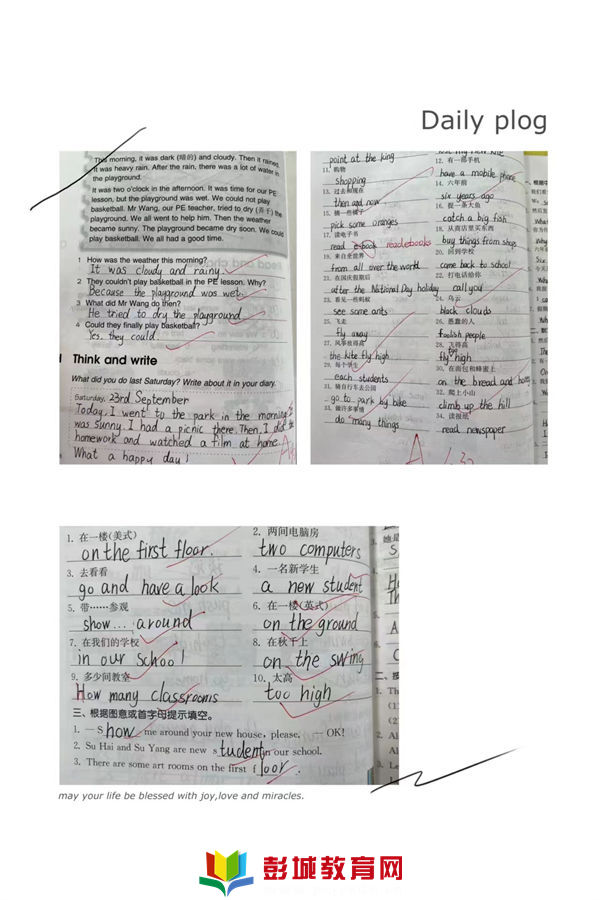 Daily plog
This morning, it was dark (暗的) and cloudy. Then it rained.
It was heavy rain. After the rain, there was a lot of water in
the playground.
It was two o'clock in the afternoon. It was time for our PE
lesson, but the playground was wet. We could not play
basketball. Mr Wang, our PE teacher, tried to dry (弄干) the
playground. We all went to help him. Then the weather
became sunny. The playground became dry soon. We could
play basketball. We all had a good time.
1 How was the weather this morning?
It was cloudy and rainy.
2 They couldn't play basketball in the PE lesson. Why?
Because the playground was wet.
3 What did Mr Wang do then?
He tried to dry the playground
4 Could they finally play basketball?
Yes, they could.
Think and write
What did you do last Saturday? Write about it in your diary.
Saturday, 23rd September
Today, I went to the park in the morning. It
was sunny. I had a picnic there. Then, I did the
homework and watched a film at home.
What a happy day!
point at the king
11. 购物
12. 有一部手机
shopping
have a mobile phone
13. 过去和现在
14. 六年前
then and now
six years ago
15. 摘一些橘子
16. 捉一条大鱼
pick some oranges
catch a big fish
17. 读电子书
18. 从商店里买东西
read e-book read e-books
buy things from shops
19. 来自全世界
20. 回到学校
from all over the world
come back to school
21. 在国庆假期后
22. 打电话给你
after the National Day holiday
call you
23. 看见一些蚂蚁
24. 乌云
see some ants
black clouds
25. 飞走
26. 愚蠢的人
fly away
foolish people
27. 风筝飞得高
28. 飞得高
the kite fly high
fly too high
29. 每个学生
30. 在面包和蜂蜜上
each students
on the bread and honey
31. 骑自行车去公园
32. 爬上小山
go to park by bike
climb up the hill
33. 做许多事情
读报纸
do many things
read newspaper
1. 在一楼(美式)
2. 两间电脑房
on the first floor.
two computers
3. 去看看
4. 一名新学生
go and have a look
a new student
5. 带……参观
6. 在一楼(英式)
show... around
on the ground
7. 在我们的学校
8. 在秋千上
in our school
on the swing
9. 多少间教室
10. 太高
How many classrooms
too high
三、根据图意或首字母提示填空。
1. — Show me around your new house, please. — OK!
2. Su Hai and Su Yang are new student in our school.
3. There are some art rooms on the first floor.
may your life be blessed with joy,love and miracles.
彭城教育网